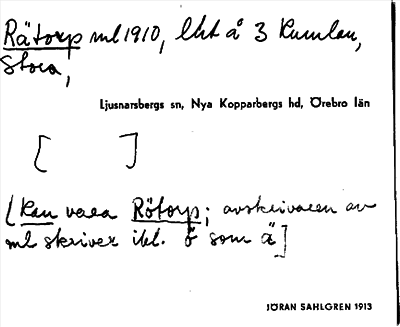 Rätorp ml 1910, lht å 3 Kumlan,
Stora,
Ljusnarsbergs sn, Nya Kopparbergs hd, Örebro län
[ ]
[Kan vara Rötorp; avskrivaren av
ml skriver ibl. ö som ä]
JÖRAN SAHLGREN 1913